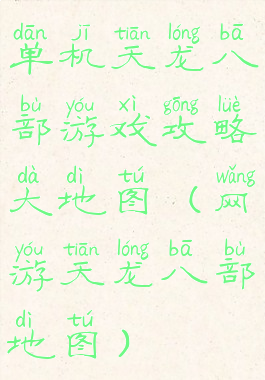 dān jī tiān lóng bā
单机天龙八
bù yóu xì gōng lüè
部游戏攻略
dà dì tú wǎng
大地图（网
yóu tiān lóng bā bù
游天龙八部
dì tú
地图）